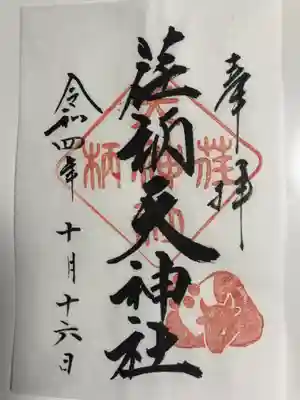 奉拝
荏柄天神社
令和四年
十月十六日